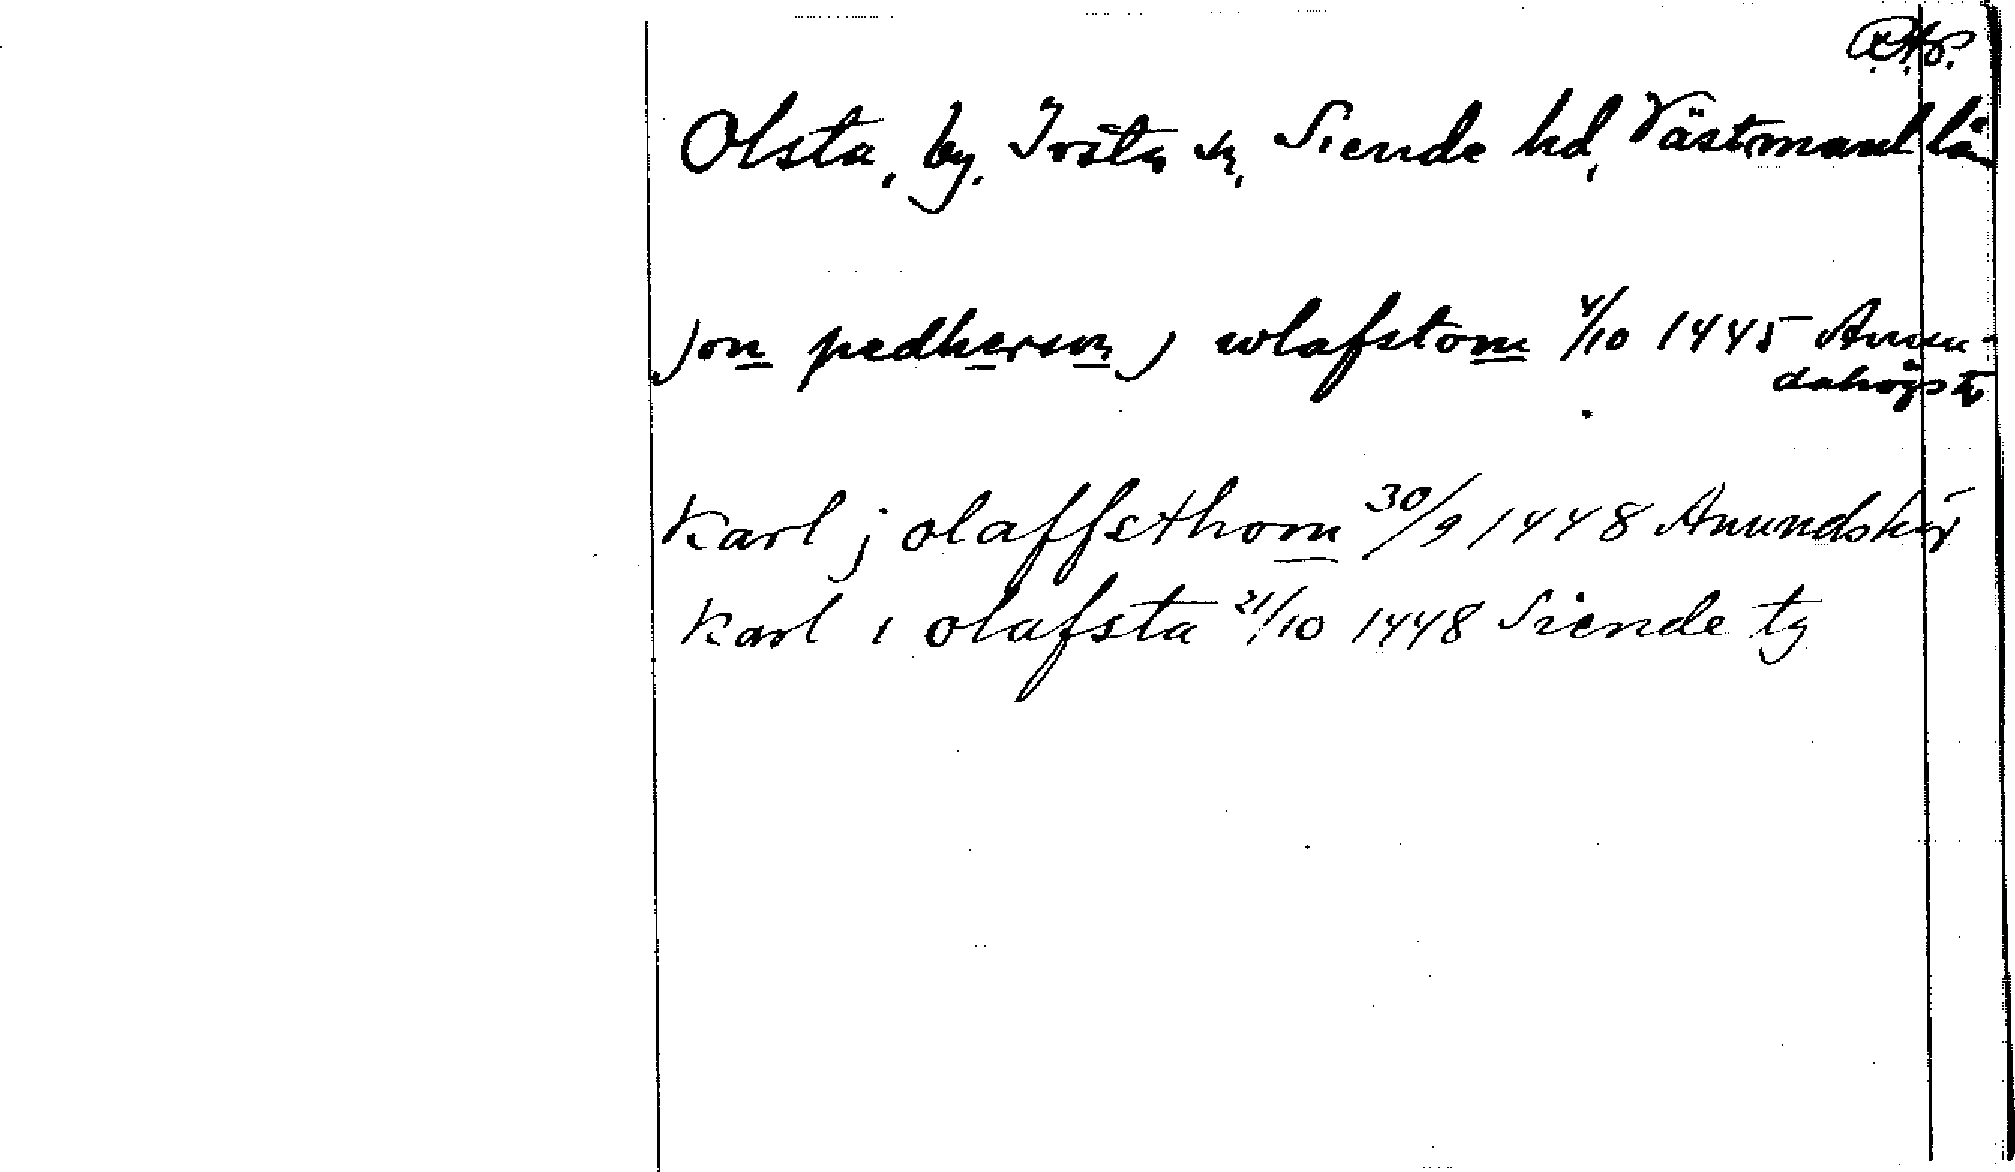 R.A.P.
Olsta, by, Irsta sn, Siende hd, Västmanl län
jon pedherson j wlafstom 4/10 1445 Anun-
dahögs tg
Karl j olaffsthom 30/9 1448 Anundshög
Karl i olafsta 21/10 1448 Siende tg